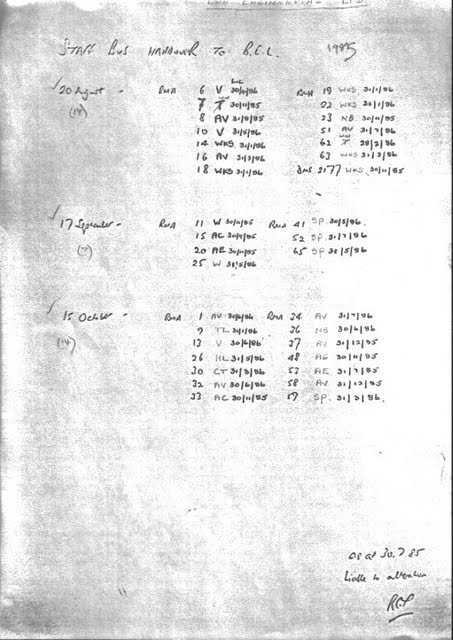 BUS ENGINEERING LTD
STAFF BUS HANDOVER TO B.E.L. 1985
✓ 20 August - RMA 6 V 30/4/86 RMA 19 WKS 31/1/86
(14) 7 T 30/11/85 22 WKS 31/1/86
8 AV 31/8/85 23 NB 30/11/85
10 V 31/5/86 51 AV 31/7/86
14 WKS 31/1/86 62 X 28/2/86
16 AV 31/3/86 63 WKS 31/3/86
18 WKS 31/1/86 DMS 2177 WKS 30/11/85
✓ 17 September - RMA 11 W 30/11/85 RMA 41 SP 30/5/86
15 AC 30/9/85 52 SP 31/7/86
20 AE 30/11/85 65 SP 31/5/86
25 W 31/5/86
✓ 15 October - RMA 1 AV 30/6/86 RMA 34 AV 31/7/86
(14) 9 31/1/86 36 NB 30/6/86
13 V 30/6/86 37 AV 31/12/85
26 HL 31/5/86 48 AE 30/11/85
30 CT 31/3/86 53 AE 31/7/85
32 AV 30/6/86 58 AV 31/12/85
33 AC 30/11/85 59 SP. 31/3/86.
as at 30.7.85
Liable to alteration